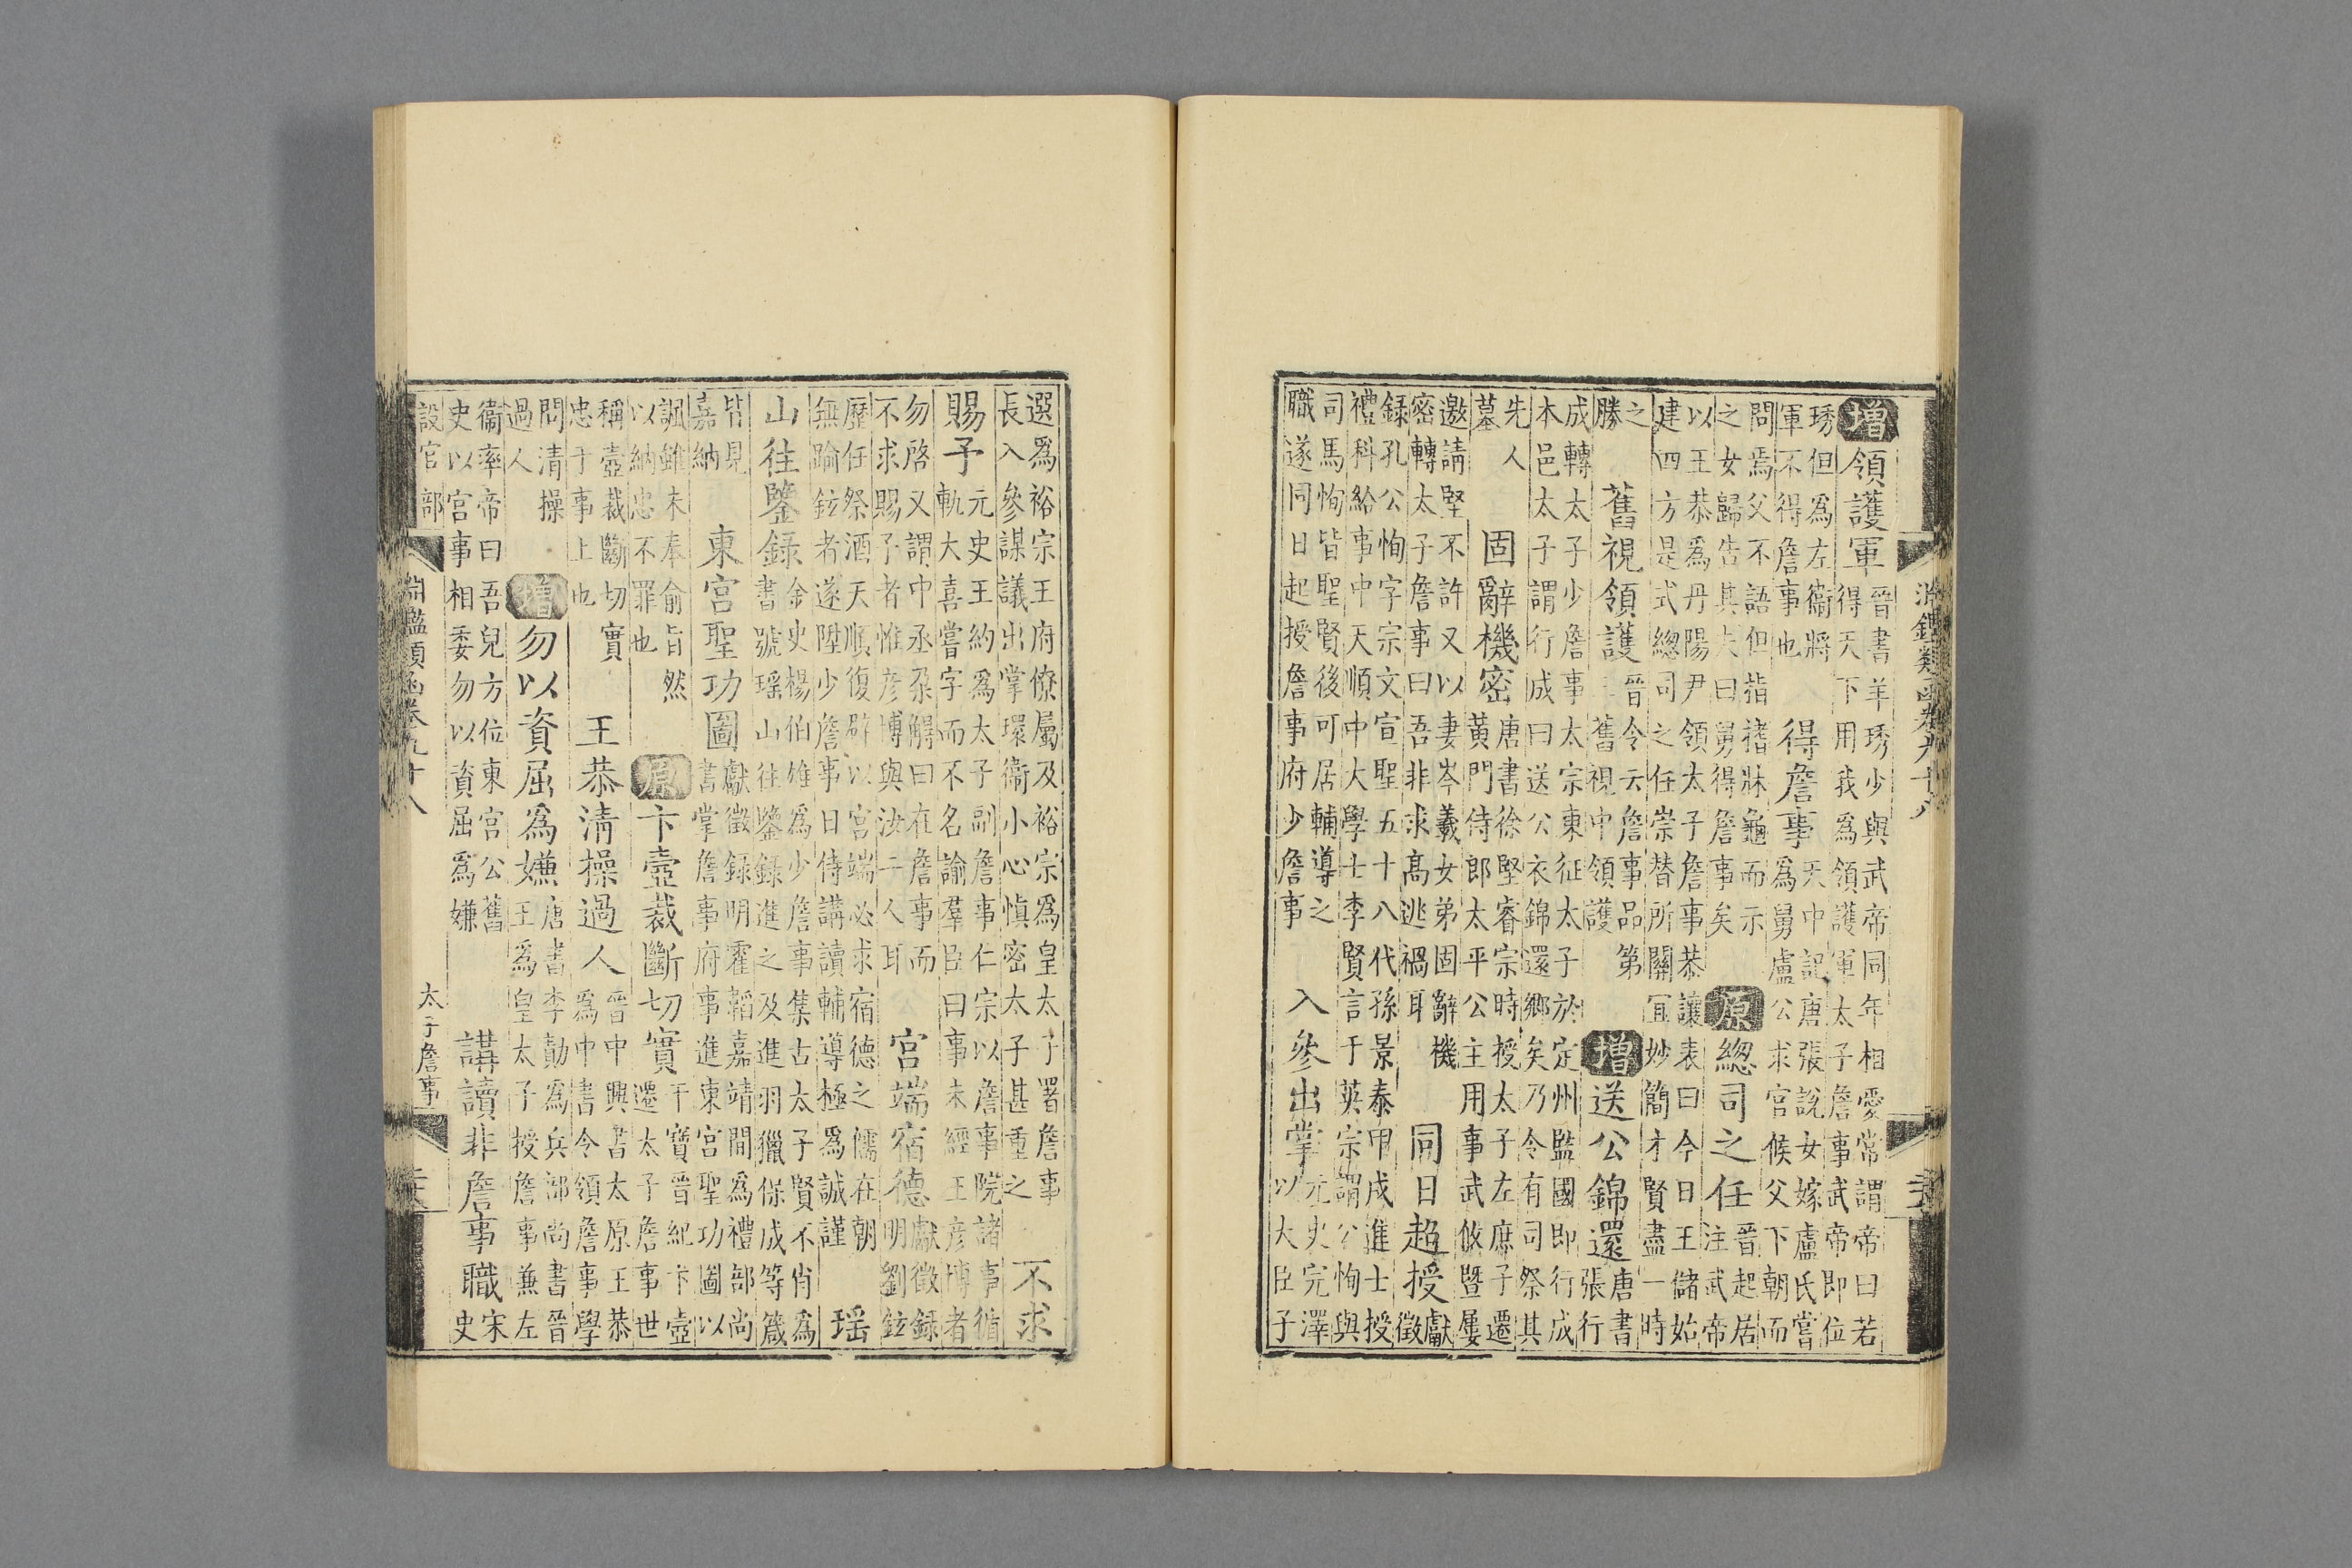 淵鑑類函卷九十八
增領護軍晉書羊琇少與武帝同年相愛常謂帝曰若
得天下用我爲領護軍太子詹事武帝即位
琇但爲左衞將
軍不得詹事也得詹事天中記唐張說女嫁盧氏嘗
爲舅盧公求官候父下朝而
問焉父不語但指搘牀龜而示
之女歸告其夫曰舅得詹事矣原總司之任晉起居
注武帝
以王恭爲丹陽尹領太子詹事恭讓表曰今日王儲始
建四方是式總司之任崇替所關宜妙簡才賢盡一時
之
勝舊視領護晉令云詹事品第
舊視中領護增送公錦還唐書
張行
成轉太子少詹事太宗東征太子於定州監國即行成
本邑太子謂行成曰送公衣錦還鄉矣乃令有司祭其
先人
墓固辭機密唐書徐堅睿宗時授太子左庶子遷
黃門侍郎太平公主用事武攸暨屢
邀請堅不許又以妻岑羲女弟固辭機
密轉太子詹事曰吾非求高逃禍耳同日超授獻
徵
錄孔公恂字宗文宣聖五十八代孫景泰甲戌進士授
禮科給事中天順中大學士李賢言于英宗謂公恂與
司馬恂皆聖賢後可居輔導之
職遂同日起授詹事府少詹事入參出掌元史完澤
以大臣子
選爲裕宗王府僚屬及裕宗爲皇太子署詹事
長入參謀議出掌環衞小心愼密太子甚重之不求
賜予元史王約爲太子副詹事仁宗以詹事院諸事循
軌大喜嘗字而不名諭羣臣曰事未經王彥博者
勿啓又謂中丞朶䚟曰在詹事而
不求賜予者惟彥博與汝二人耳宮端宿德獻徵錄
明劉鉉
歷任祭酒天順復辟以宮端必求宿德之儒在朝
無踰鉉者遂陞少詹事日侍講讀輔導極爲誠謹瑤
山往鑒錄金史楊伯雄爲少詹事集古太子賢不肖爲
書號瑤山往鑒錄進之及進羽獵保成等箴
皆見
嘉納東宮聖功圖獻徵錄明霍韜嘉靖間爲禮部尚
書掌詹事府事進東宮聖功圖以
諷雖未奉俞旨然
以納忠不罪也原卞壼裁斷切實干寶晉紀卞壼
遷太子詹事世
稱壼裁斷切實
忠于事上也王恭清操過人晉中興書太原王恭
爲中書令領詹事學
問清操
過人增勿以資屈爲嫌唐書李勣爲兵部尚書晉
王爲皇太子授詹事兼左
衞率帝曰吾兒方位東宮公舊
史以宮事相委勿以資屈爲嫌講讀非詹事職宋
史
設官部 淵鑑類函卷九十八 太子詹事